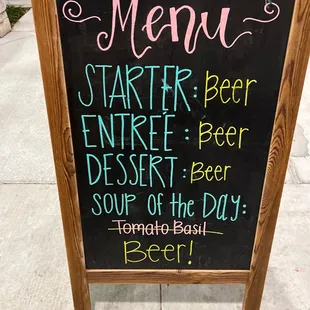 Menu
STARTER: Beer
ENTRÉE: Beer
DESSERT: Beer
SOUP of the DAY:
Tomato Basil
Beer!